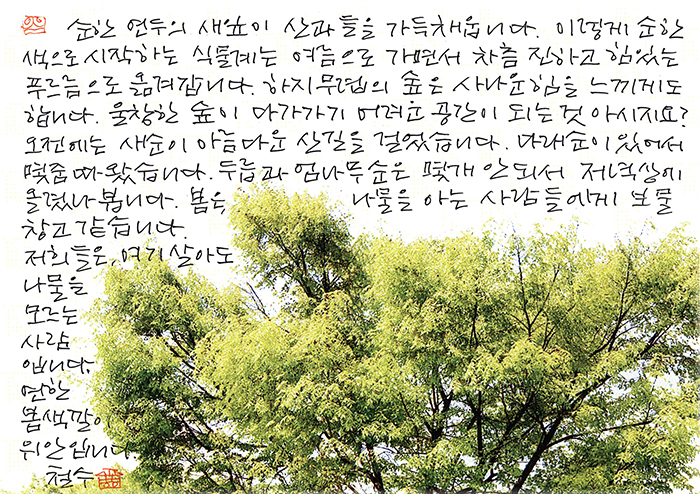 순한 연두의 새잎이 산과 들을 가득채웁니다. 이렇게 순한
색으로 시작하는 식물계는 여름으로 가면서 차츰 진하고 힘있는
푸르름으로 옮겨집니다. 하지무렵의 숲은 사나운힘을 느끼게도
합니다. 울창한 숲이 다가가기 어려운 공간이 되는것 아시지요?
오전에는 새순이 아름다운 산길을 걸었습니다. 다래순이 있어서
몇줌 따왔습니다. 두릅과 엄나무순은 몇개 안되서 저녁상에
올렸나 봅니다. 봄은, 나물을 아는 사람들에게 보물
창고 같습니다.
저희들은, 여기 살아도
나물을
모르는
사람
입니다.
연한
봄색깔이
위안입니다.
철수